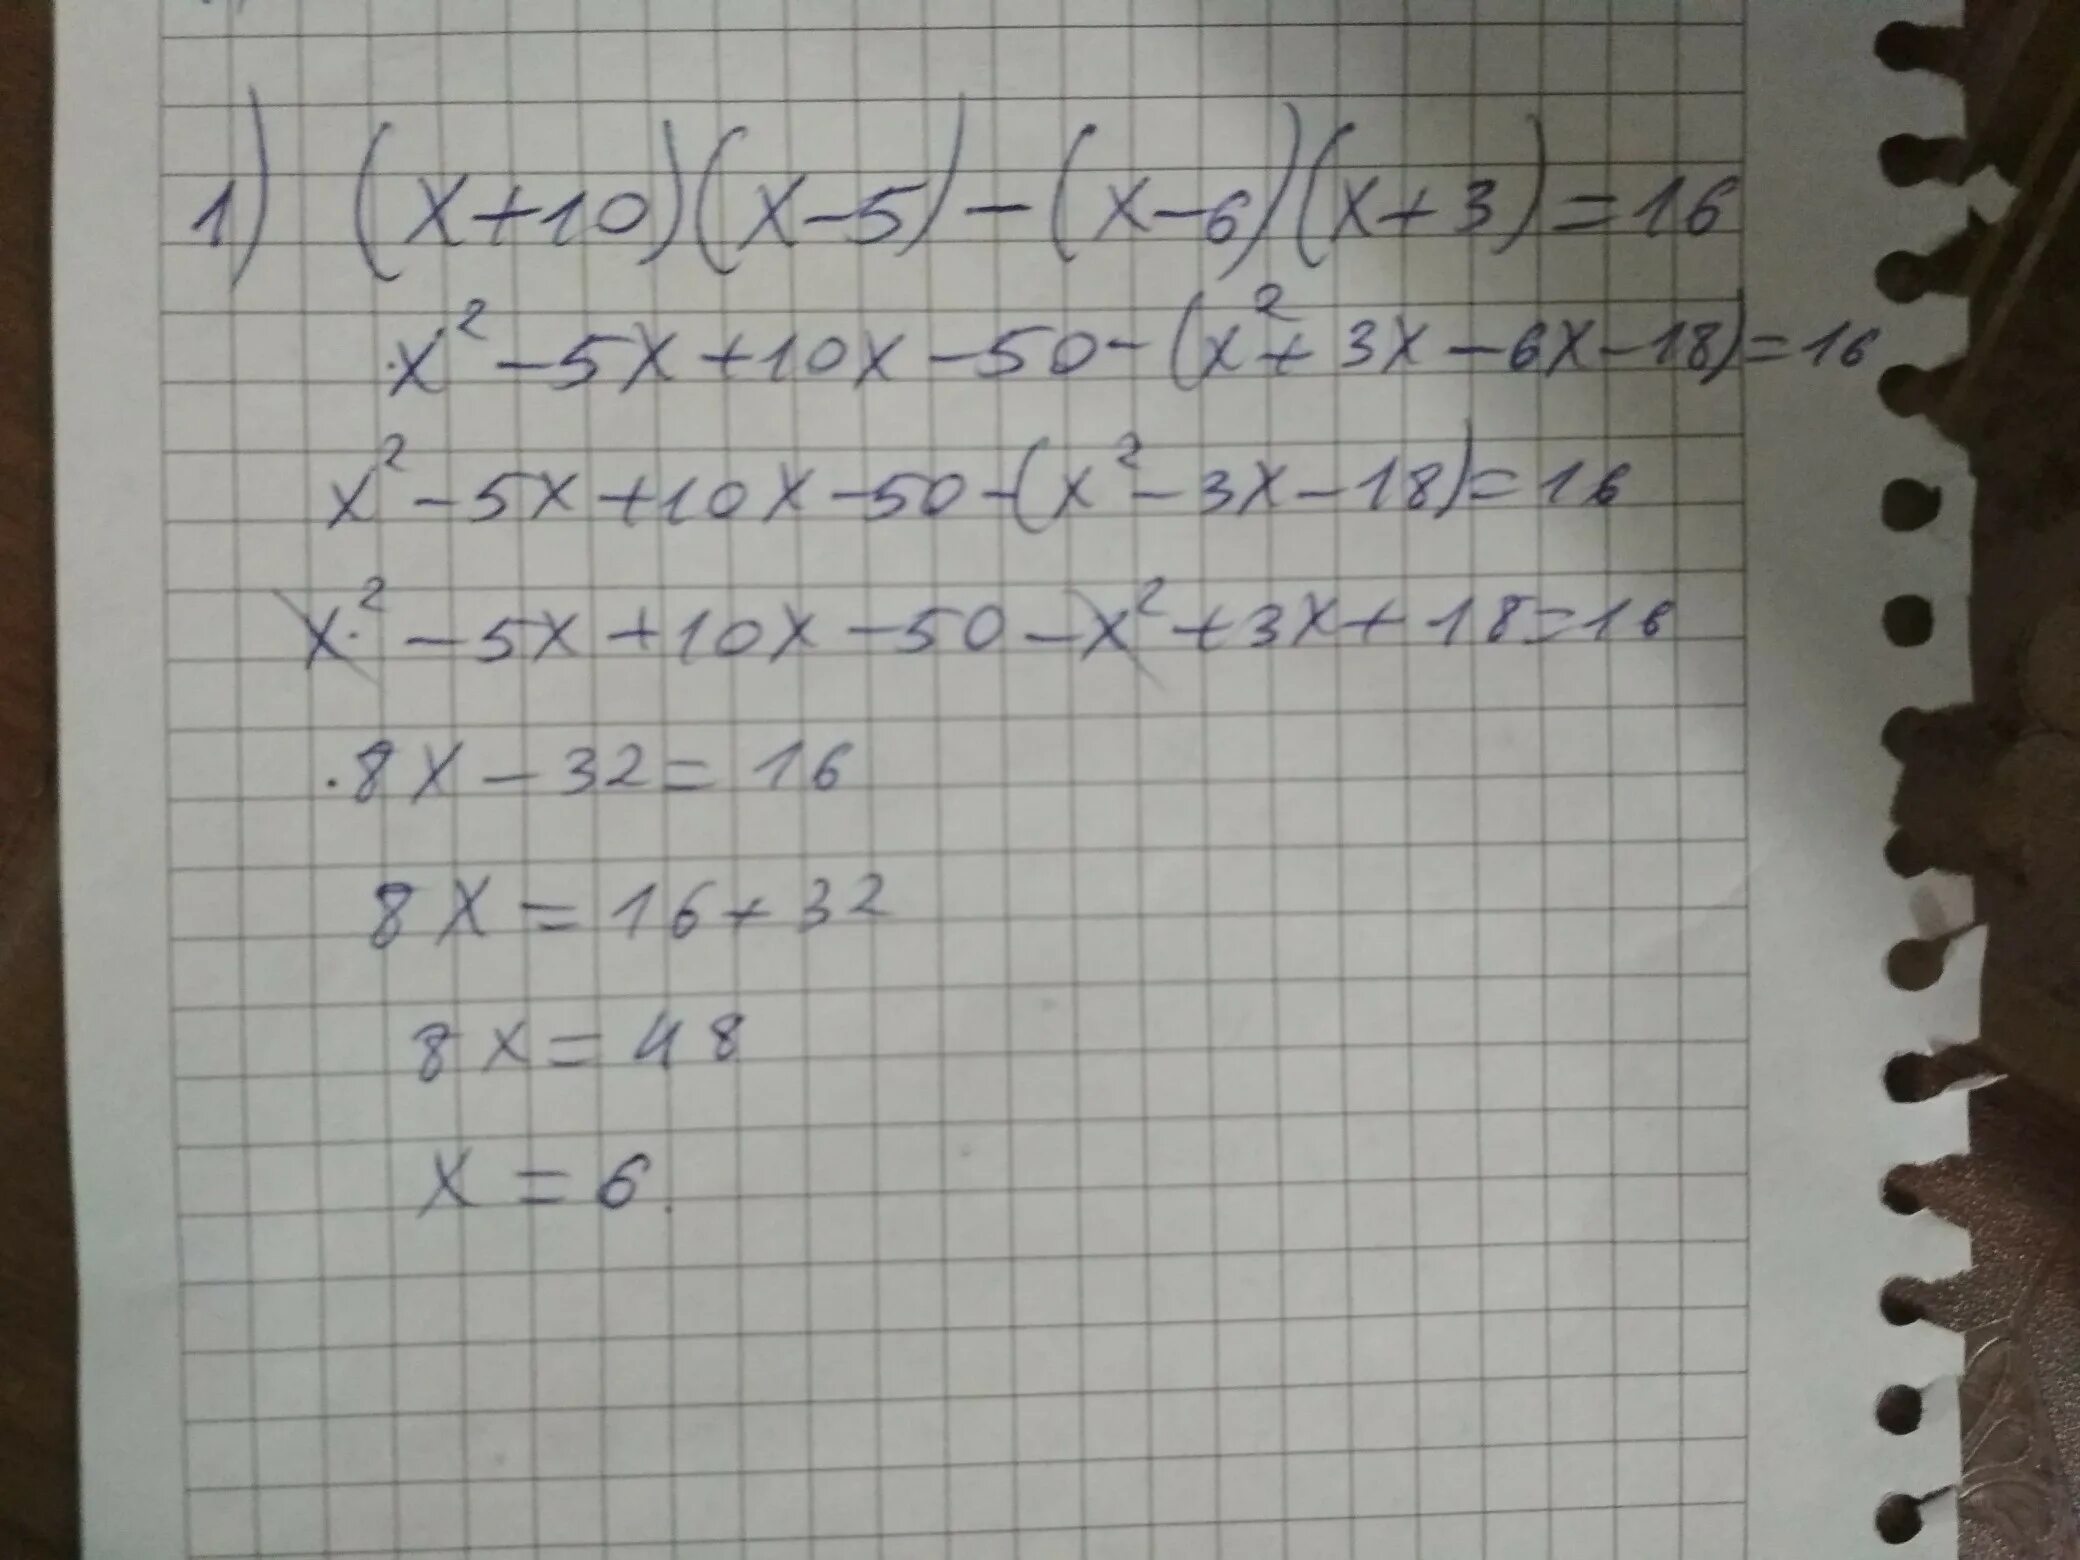 1) (x+10)(x-5)-(x-6)(x+3)=16
x²-5x+10x-50-(x²+3x-6x-18)=16
x²-5x+10x-50-(x²-3x-18)=16
x²-5x+10x-50-x²+3x+18=16
8x-32=16
8x=16+32
8x=48
x=6.